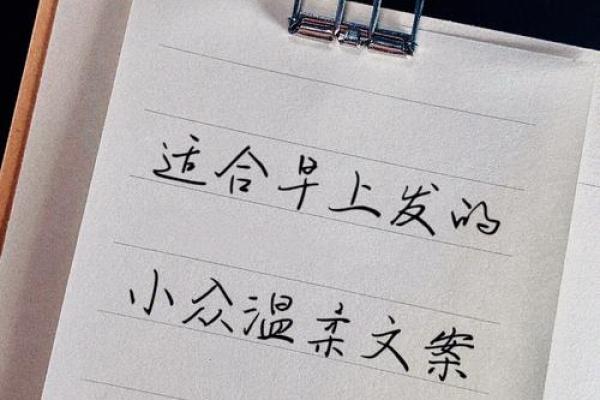 适合早上发的
小众温柔文案